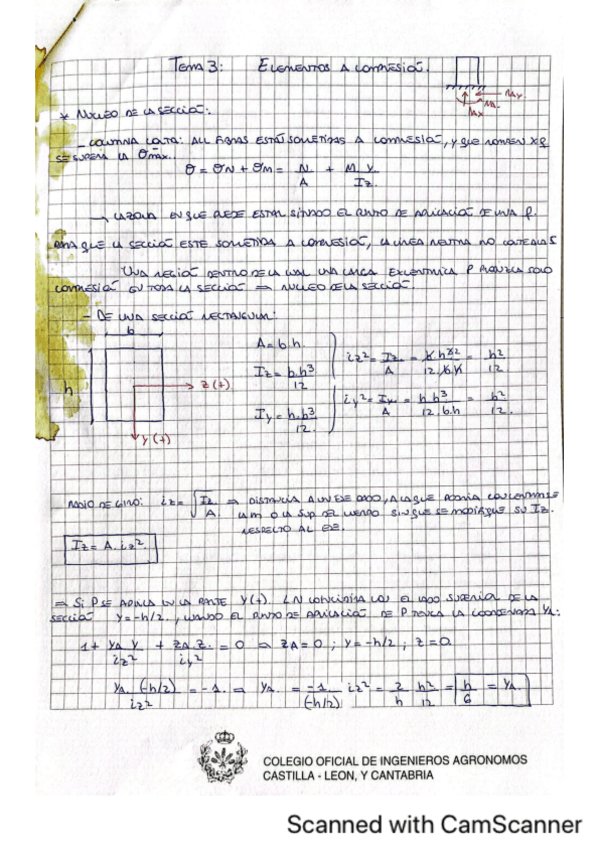 TEMA 3: ELEMENTOS A COMPRESIÓN.
* NÚCLEO DE LA SECCIÓN:
- COLUMNA CORTA: ALL FIBRAS ESTÁN SOMETIDAS A COMPRESIÓN, Y QUE ROMPEN XQ
SE SUPERA LA σmax.
σ = σN + σM = N/A + M y/Iz.
→ LA ZONA EN QUE PUEDE ESTAR SITUADO EL PUNTO DE APLICACIÓN DE UNA P.
PARA QUE LA SECCIÓN ESTE SOMETIDA A COMPRESIÓN, LA LINEA NEUTRA NO
UNA REGIÓN DENTRO DE LA CUAL UNA CARGA EXCENTRICA P PRODUZCA SOLO
COMPRESIÓN EN TODA LA SECCIÓN ⇒ NUCLEO DE LA SECCIÓN.
- DE UNA SECCIÓN RECTANGULAR:
b
h
z (+)
y (+)
A = b·h
Iz = b·h³/12
Iy = h·b³/12.
iz² = Iz/A = = h²/12.
iy² = Iy/A = = b²/12.
RADIO DE GIRO: iz = √Iz/A. ⇒ DISTANCIA A UN EJE DADO, A LA QUE PODRIA CONCENTRARSE
LA M O LA SUP DEL CUERPO SIN QUE SE MODIFIQUE SU Iz.
RESPECTO AL EJE.
Iz = A·iz².
⇒ SI P SE APLICA EN LA PARTE Y(+). LN COINCIDIRA CON EL LADO SUPERIOR DE LA
SECCIÓN y = -h/2, CUANDO EL PUNTO DE APLICACIÓN DE P TENGA LA COORDENADA YA:
1 + yA y/iz² + zA z/iy² = 0 ⇒ zA = 0 ; y = -h/2 ; z = 0
yA (-h/2)/iz² = -1. ⇒ yA = -1/(-h/2) iz² = 2/h h²/12 = h/6 = yA.
COLEGIO OFICIAL DE INGENIEROS AGRONOMOS
CASTILLA - LEON, Y CANTABRIA
Scanned with CamScanner